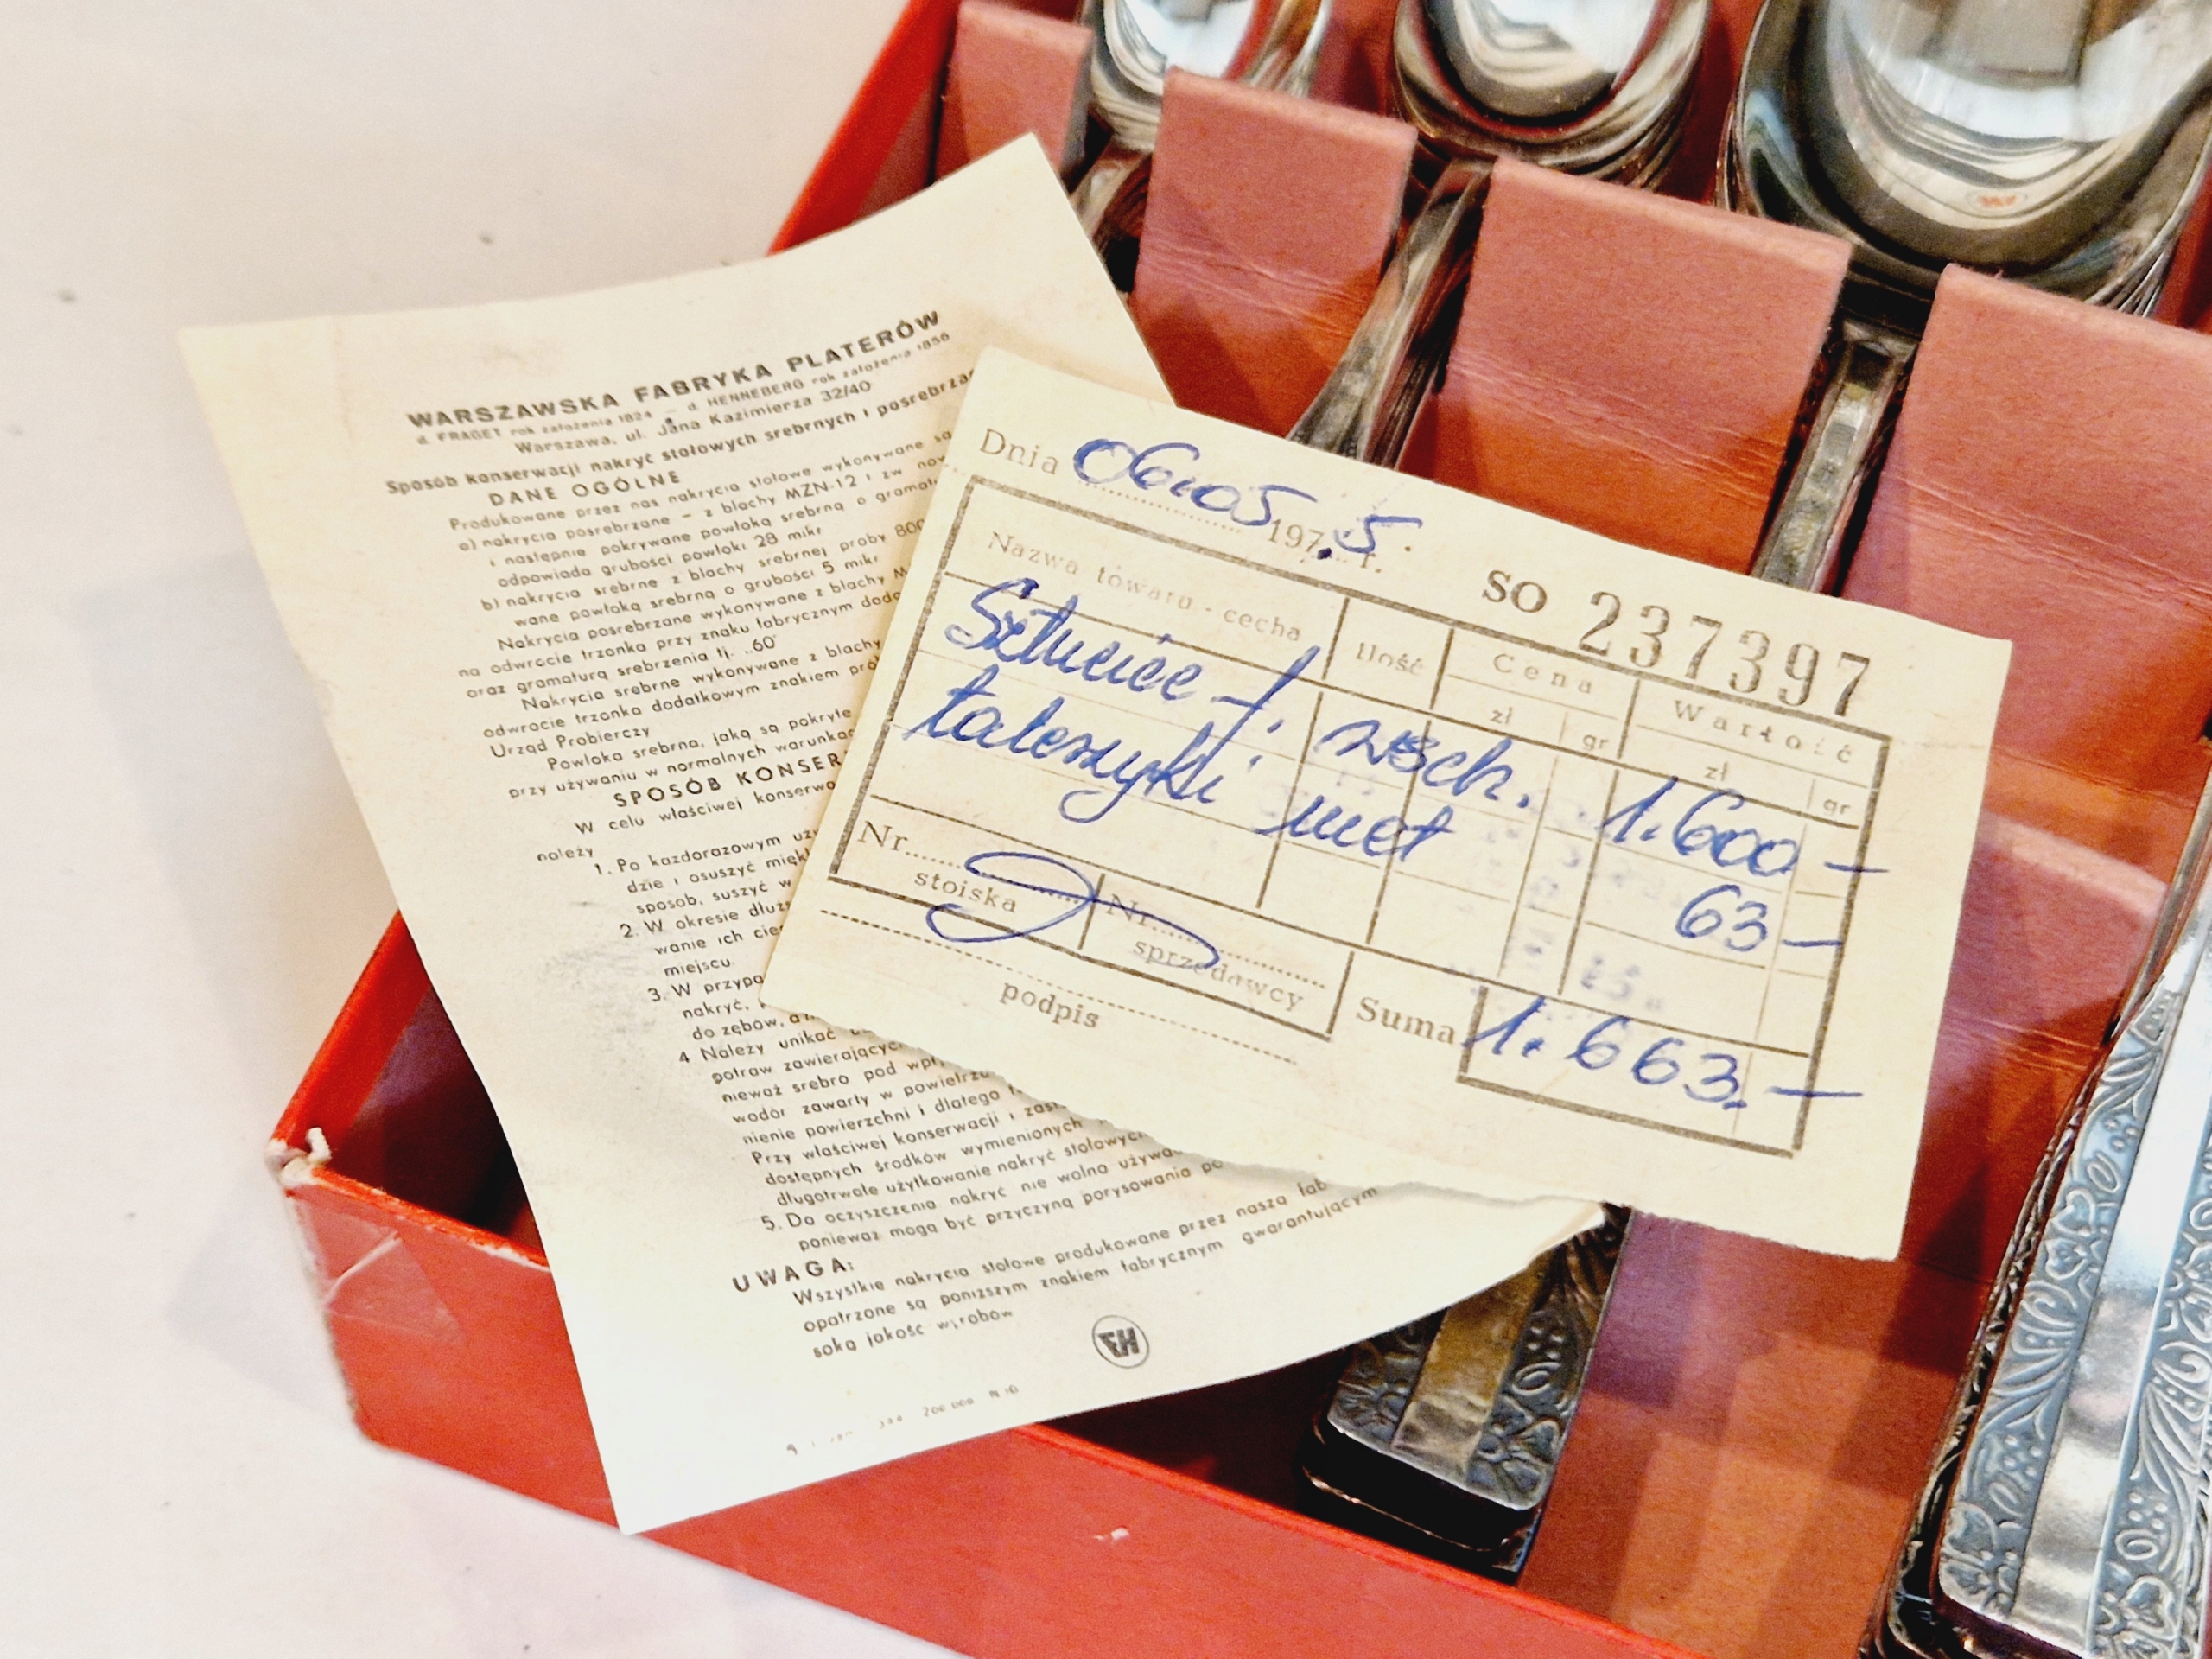 WARSZAWSKA FABRYKA PLATERÓW
d. FRAGET rok założenia 1824 — d. HENNEBERG rok założenia 1856
Warszawa, ul. Jana Kazimierza 32/40
Sposób konserwacji nakryć stołowych srebrnych i posrebrza
DANE OGÓLNE
Produkowane przez nas nakrycia stołowe wykonywane są
a) nakrycia posrebrzane – z blachy MZN-12 i zw
i następnie pokrywane powłoką srebrną o gramat
odpowiada grubości powłoki 28 mikr
b) nakrycia srebrne z blachy srebrnej próby 800
wane powłoką srebrną o grubości 5 mikr
Nakrycia posrebrzane wykonywane z blachy M
na odwrocie trzonka przy znaku fabrycznym doda
oraz gramaturą srebrzenia tj. „60"
Nakrycia srebrne wykonywane z blachy
odwrocie trzonka dodatkowym znakiem prób
Urząd Probierczy
Powłoka srebrna, jaką są pokryte
przy używaniu w normalnych warunkac
SPOSÓB KONSER
W celu właściwej konserwa
należy
1. Po każdorazowym uży
dzie i osuszyć miękk
sposób, suszyć w
2. W okresie dłuż
wanie ich cie
miejscu.
3. W przypa
nakryć,
do zębów, a
4 Należy unikać
potraw zawierającyc
nieważ srebro pod wpł
wodór zawarty w powietrzu
nienie powierzchni i dlatego
Przy właściwej konserwacji i zas
dostępnych środków wymienionych
długotrwałe użytkowanie nakryć stołowyc
5. Do oczyszczenia nakryć nie wolno używa
ponieważ mogą być przyczyną porysowania po
UWAGA:
Wszystkie nakrycia stołowe produkowane przez naszą fab
opatrzone są poniższym znakiem fabrycznym gwarantującym
soką jakość wyrobów
200.000
Dnia 06.05 1975 r.
SO 237397
Nazwa towaru - cecha Ilość Cena Wartość
zł gr zł gr
Sztućce 1.600 —
talerzyki met 63 —
Nr stoiska Nr sprzedawcy Suma 1.663.—
podpis